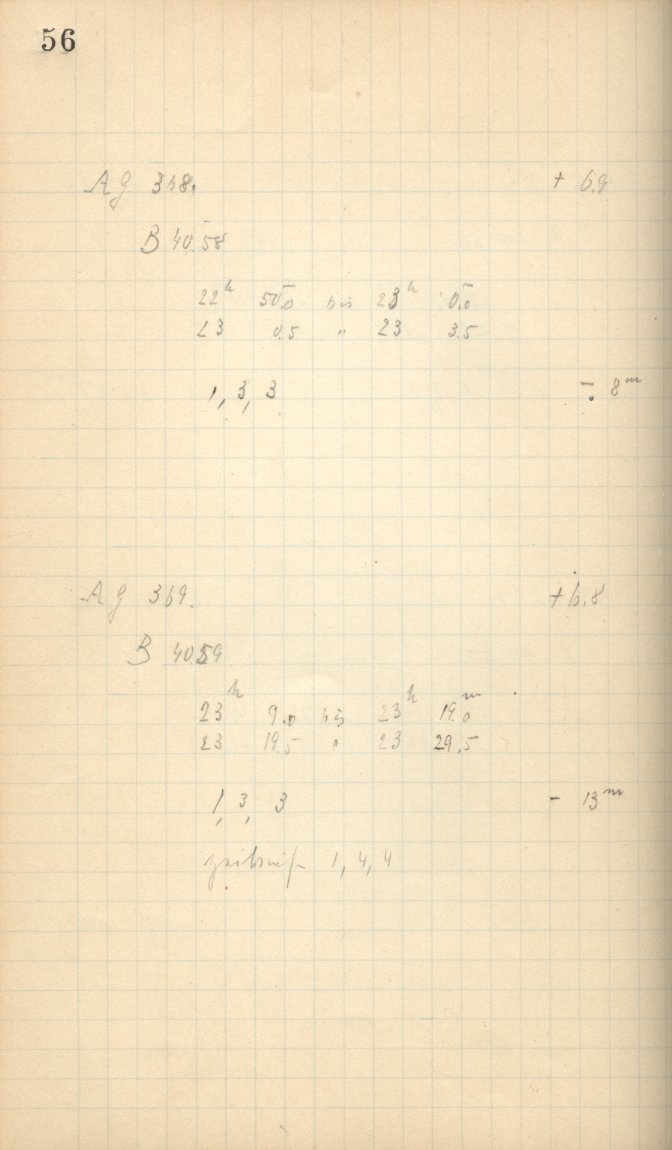 56
AG 368. + 6.9
B 4058
22h 50.0m bis 23h 0.0m
23 0.5 " 23 3.5
1, 3, 3 - 8m
AG 369. + 6.8
B 4059
23h 9.0 bis 23h 19.0m
23 19.5 " 23 29.5
1, 3, 3 - 13m
zeitweise 1, 4, 4